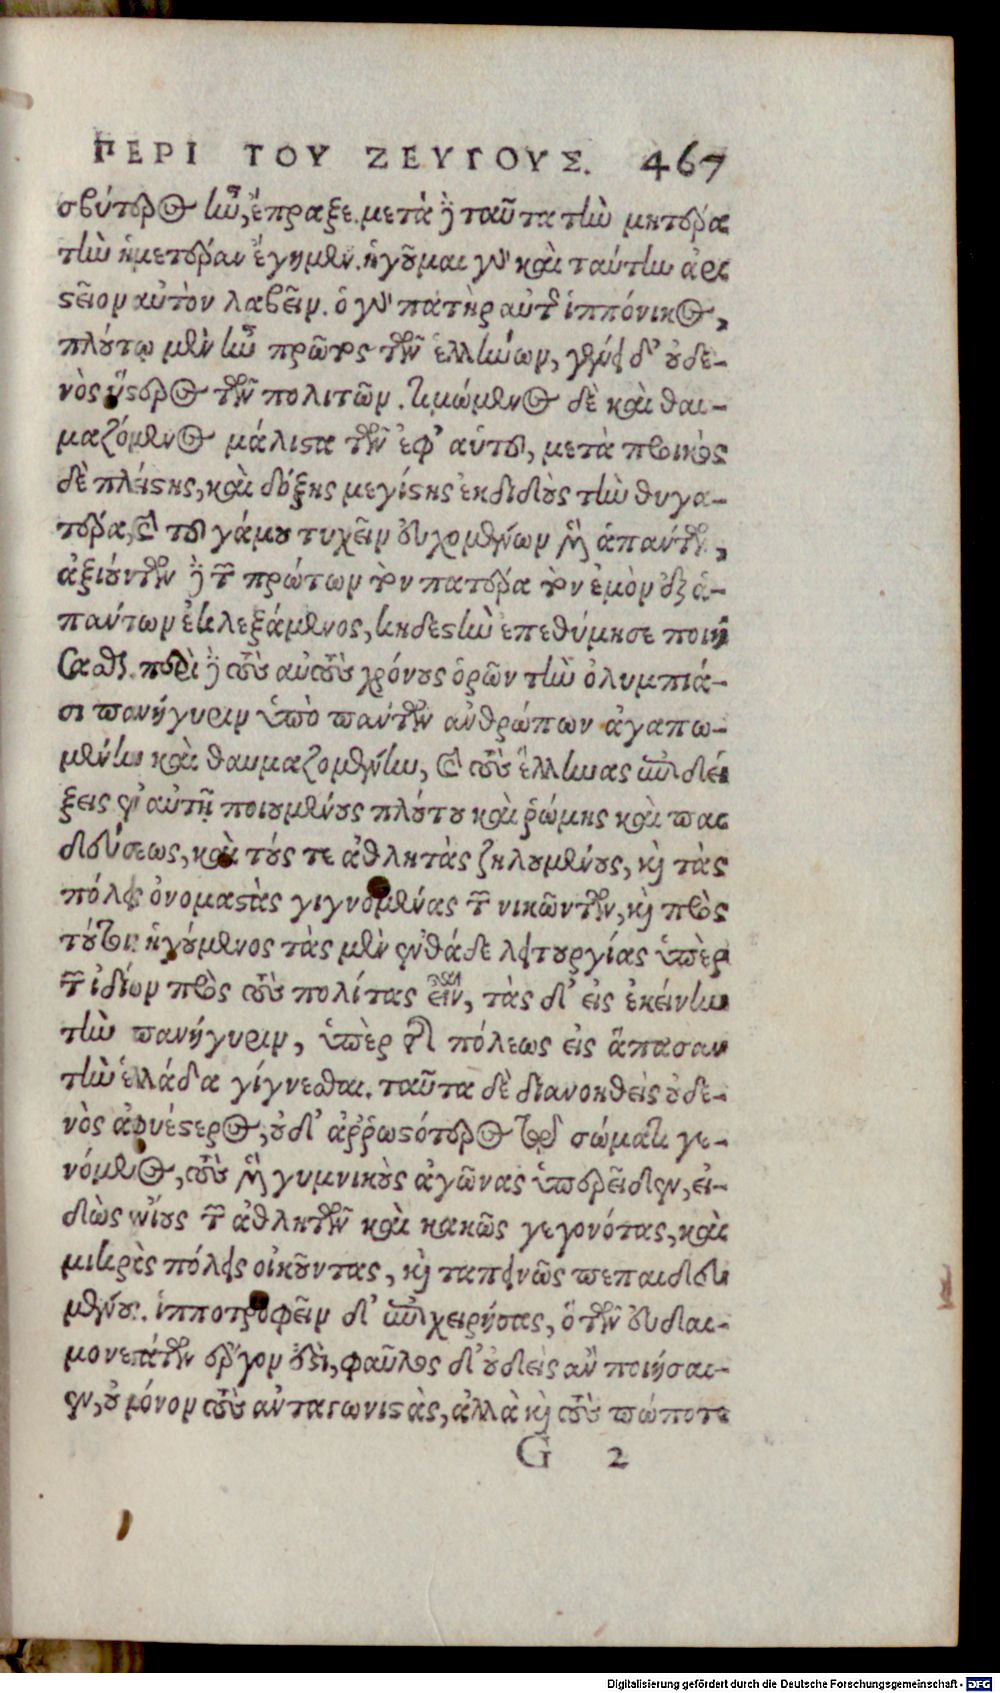 ΠΕΡΙ ΤΟΥ ΖΕΥΓΟΥΣ. 467
σβύτερος ἦν, ἔπραξε. μετὰ δὲ ταῦτα τὴν μητέρα
τὴν ἡμετέραν ἔγημεν. ἡγοῦμαι γὰρ καὶ ταύτην ἀρι
στεῖον αὐτὸν λαβεῖν. ὁ γὰρ πατὴρ αὐτῆς ἱππόνικος,
πλούτῳ μὲν ἦν πρῶτος τῶν ἑλλήνων, γένει δ' οὐδε-
νὸς ὕστερος τῶν πολιτῶν. τιμώμενος δὲ καὶ θαυ-
μαζόμενος μάλιστα τῶν ἐφ' αὑτοῦ, μετὰ προικὸς
δὲ πλείστης, καὶ δόξης μεγίστης ἐκδιδοὺς τὴν θυγα-
τέρα, καὶ τοῦ γάμου τυχεῖν εὐχομένων μὲν ἁπάντων,
ἀξιούντων δὲ τῶν πρώτων τὸν πατέρα τὸν ἐμὸν ἐξ ἁ-
πάντων ἐκλεξάμενος, κηδεστὴν ἐπεθύμησε ποιή
σασθαι. περὶ δὲ τοὺς αὐτοὺς χρόνους ὁρῶν τὴν ὀλυμπιά-
σι πανήγυριν ὑπὸ πάντων ἀνθρώπων ἀγαπω-
μένην καὶ θαυμαζομένην, καὶ τοὺς ἕλληνας ἐπιδεί
ξεις ἐν αὐτῇ ποιουμένους πλούτου καὶ ῥώμης καὶ παι
δεύσεως, καὶ τούς τε ἀθλητὰς ζηλουμένους, καὶ τὰς
πόλεις ὀνομαστὰς γιγνομένας τῶν νικώντων, καὶ πρὸς
τούτοις ἡγούμενος τὰς μὲν ἐνθάδε λειτουργίας ὑπὲρ
τῶν ἰδίων πρὸς τοὺς πολίτας εἶναι, τὰς δ' εἰς ἐκείνην
τὴν πανήγυριν, ὑπὲρ τῆς πόλεως εἰς ἅπασαν
τὴν ἑλλάδα γίγνεσθαι. ταῦτα δὲ διανοηθεὶς οὐδε-
νὸς ἀφυέστερος, οὐδ' ἀῤῥωστότερος τῷ σώματι γε-
νόμενος, τοὺς μὲν γυμνικοὺς ἀγῶνας ὑπερεῖδεν, εἰ-
δὼς ἐνίους τῶν ἀθλητῶν καὶ κακῶς γεγονότας, καὶ
μικρὰς πόλεις οἰκοῦντας, καὶ ταπεινῶς πεπαιδευ
μένους. ἱπποτροφεῖν δ' ἐπιχειρήσας, ὃ τῶν εὐδαι-
μονεστάτων ἔργον ἐστὶ, φαῦλος δ' οὐδεὶς ἂν ποιήσει-
εν, οὐ μόνον τοὺς ἀνταγωνιστὰς, ἀλλὰ καὶ τοὺς πώποτε
G 2
Digitalisierung gefördert durch die Deutsche Forschungsgemeinschaft - DFG